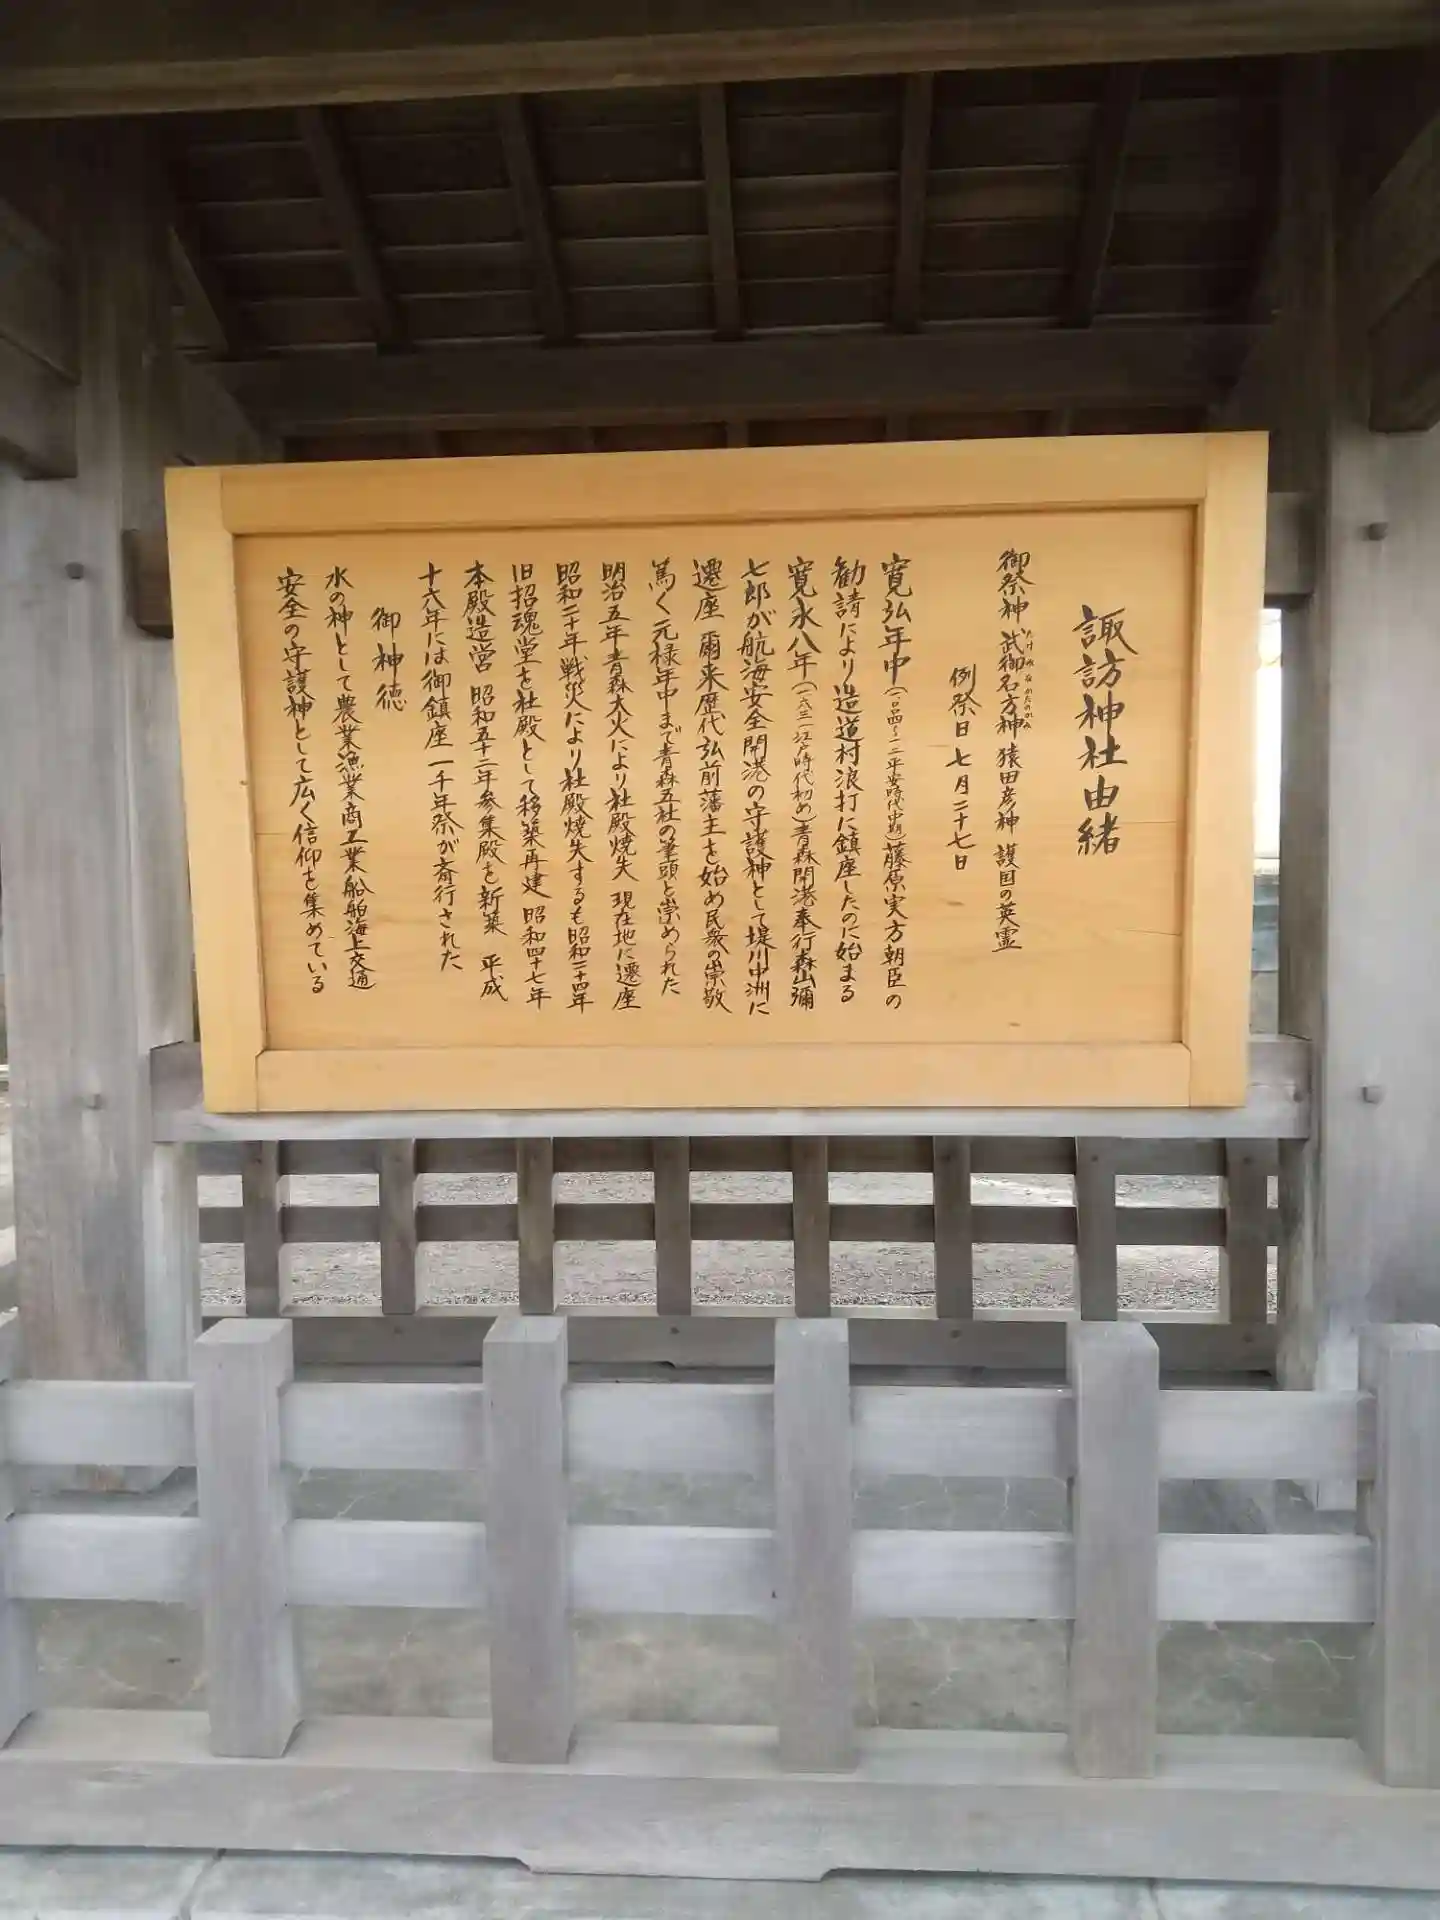 諏訪神社由緒
御祭神 武御名方神 猿田彦神 護国の英霊
たけみなかたのかみ
例祭日 七月二十七日
寛弘年中(一〇〇四〜一二平安時代中期)藤原実方朝臣の
勧請により造道村浪打に鎮座したのに始まる
寛永八年(一六三一江戸時代初め)青森開港奉行森山彌
七郎が航海安全開港の守護神として堤川中洲に
遷座 爾来歴代弘前藩主を始め民衆の崇敬
篤く元禄年中まで青森五社の筆頭と崇められた
明治五年青森大火により社殿焼失 現在地に遷座
昭和二十年戦災により社殿焼失するも昭和二十四年
旧招魂堂を社殿として移築再建 昭和四十七年
本殿造営 昭和五十二年参集殿を新築 平成
十六年には御鎮座一千年祭が斎行された
御神徳
水の神として農業漁業商工業船舶海上交通
安全の守護神として広く信仰を集めている